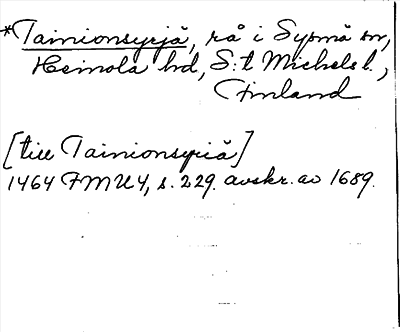 *Tainionsyrjä, rå i Sysmä sn,
Heinola hd, S:t Michels l.,
Finland
[till Tainionsyriä]
1464 FMU 4, s. 229. avskr. av 1689.